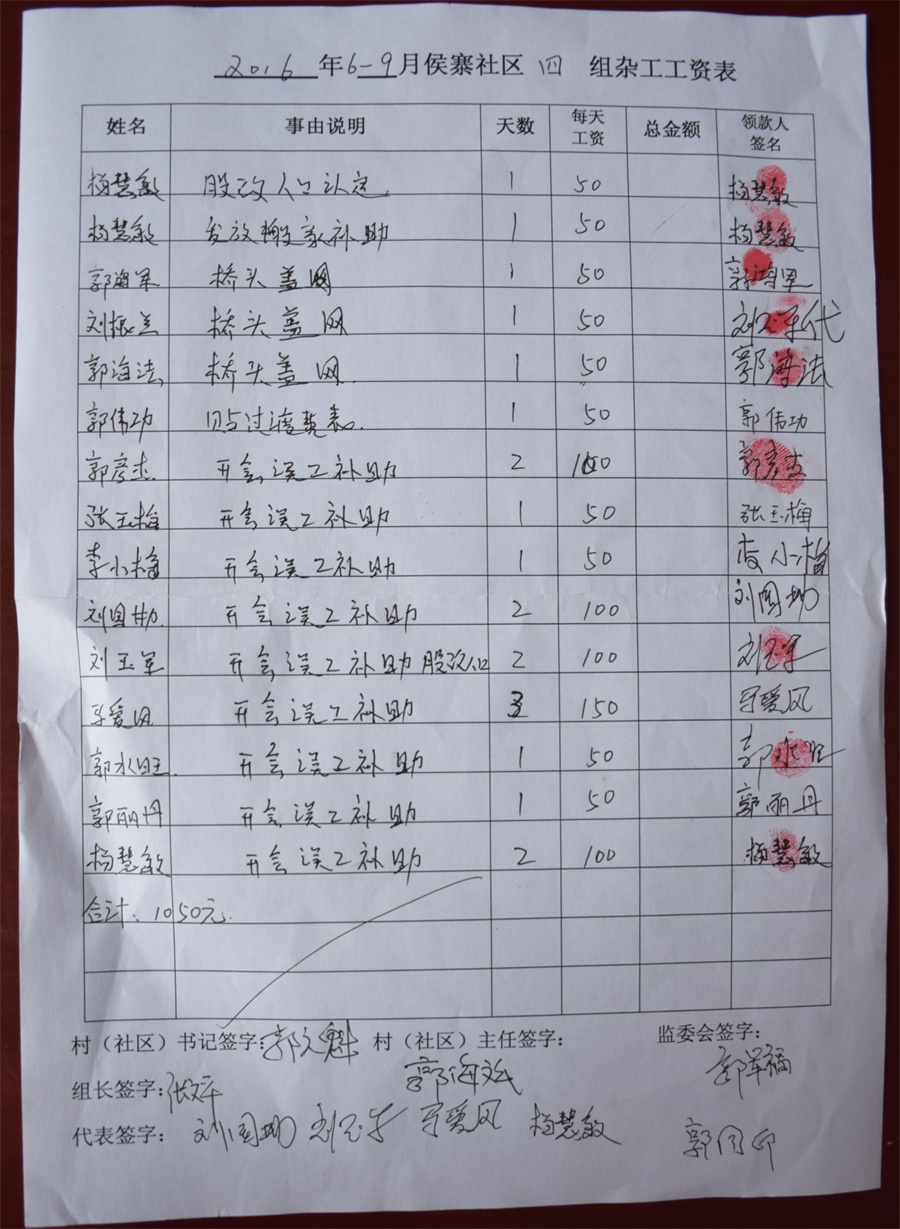 2016 年 6-9 月侯寨社区 四 组杂工工资表
姓名 事由说明 天数 每天工资 总金额 领款人签名
杨慧敏 股改人口认定. 1 50 杨慧敏
杨慧敏 发放搬家补助 1 50 杨慧敏
郭海军 桥头盖网 1 50
刘根兰 桥头盖网 1 50 代
郭海法 桥头盖网. 1 50 郭海法
郭伟功 贴过渡费表. 1 50 郭伟功
郭彦杰 开会误工补助 2 100 郭彦杰
张玉梅 开会误工补助 1 50 张玉梅
李小梅 开会误工补助 1 50 李小梅
刘国 开会误工补助 2 100 刘国
刘玉军 开会误工补助 股改人口 2 100 刘玉军
爱风 开会误工补助 3 150 爱风
郭水旺. 开会误工补助 1 50 郭水旺
郭丽丹 开会误工补助 1 50 郭丽丹
杨慧敏 开会误工补助 2 100 杨慧敏
合计: 1050元.
村（社区）书记签字: 郭文魁 村（社区）主任签字: 监委会签字:
郭海 郭军福
组长签字:
代表签字: 刘国 刘玉军 爱风 杨慧敏
郭同